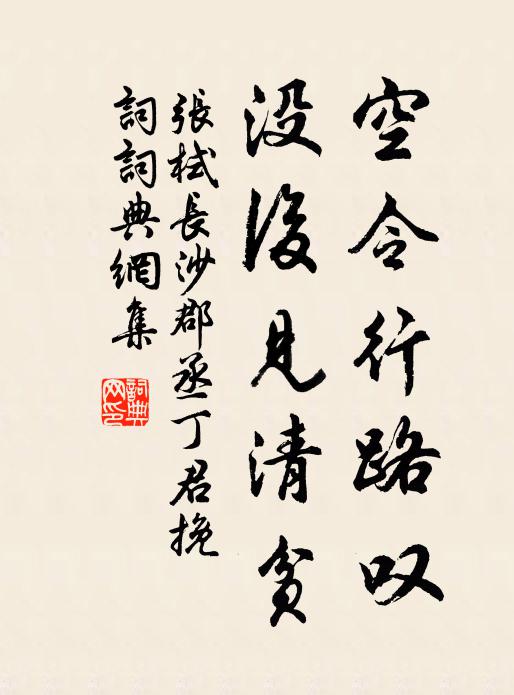 空令行路叹
没後見清贫
張栻長沙郡丞丁君挽
詞詞典網集
詞典網印